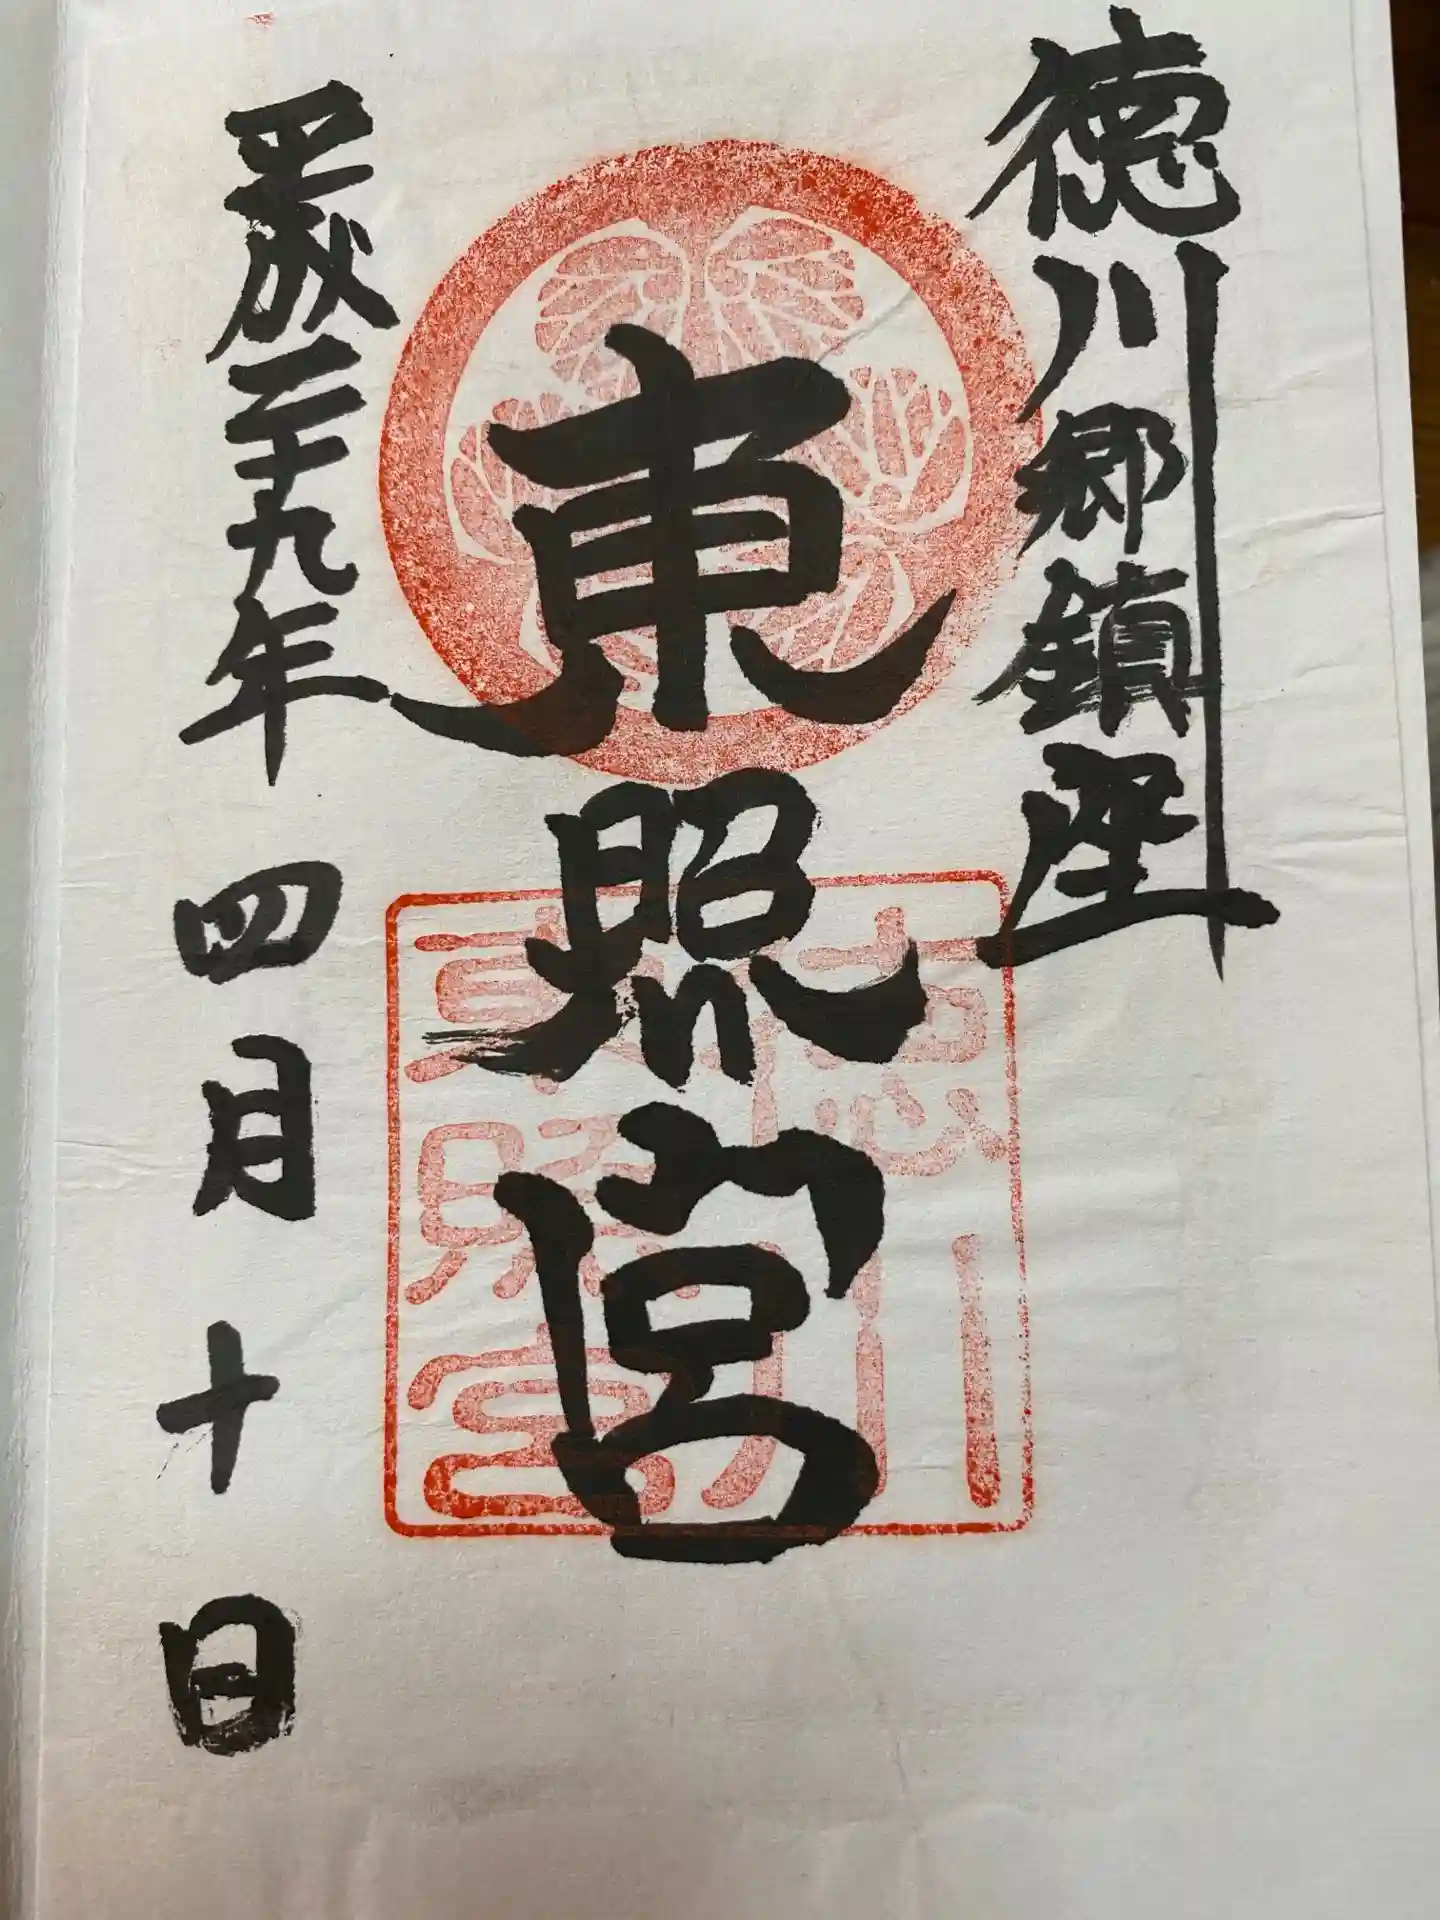 徳川郷鎮座
東照宮
平成二十九年 四月 十日
徳川
東照宮